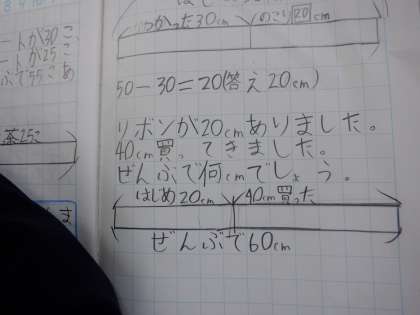 ートが30こ
ートが25こ
ぶで55こあ
茶25こ
つかった30cm
のこり20cm
50-30=20(答え20cm)
リボンが20cmありました。
40cm買ってきました。
ぜんぶで何cmでしょう。
はじめ20cm
40cm買った
ぜんぶで60cm